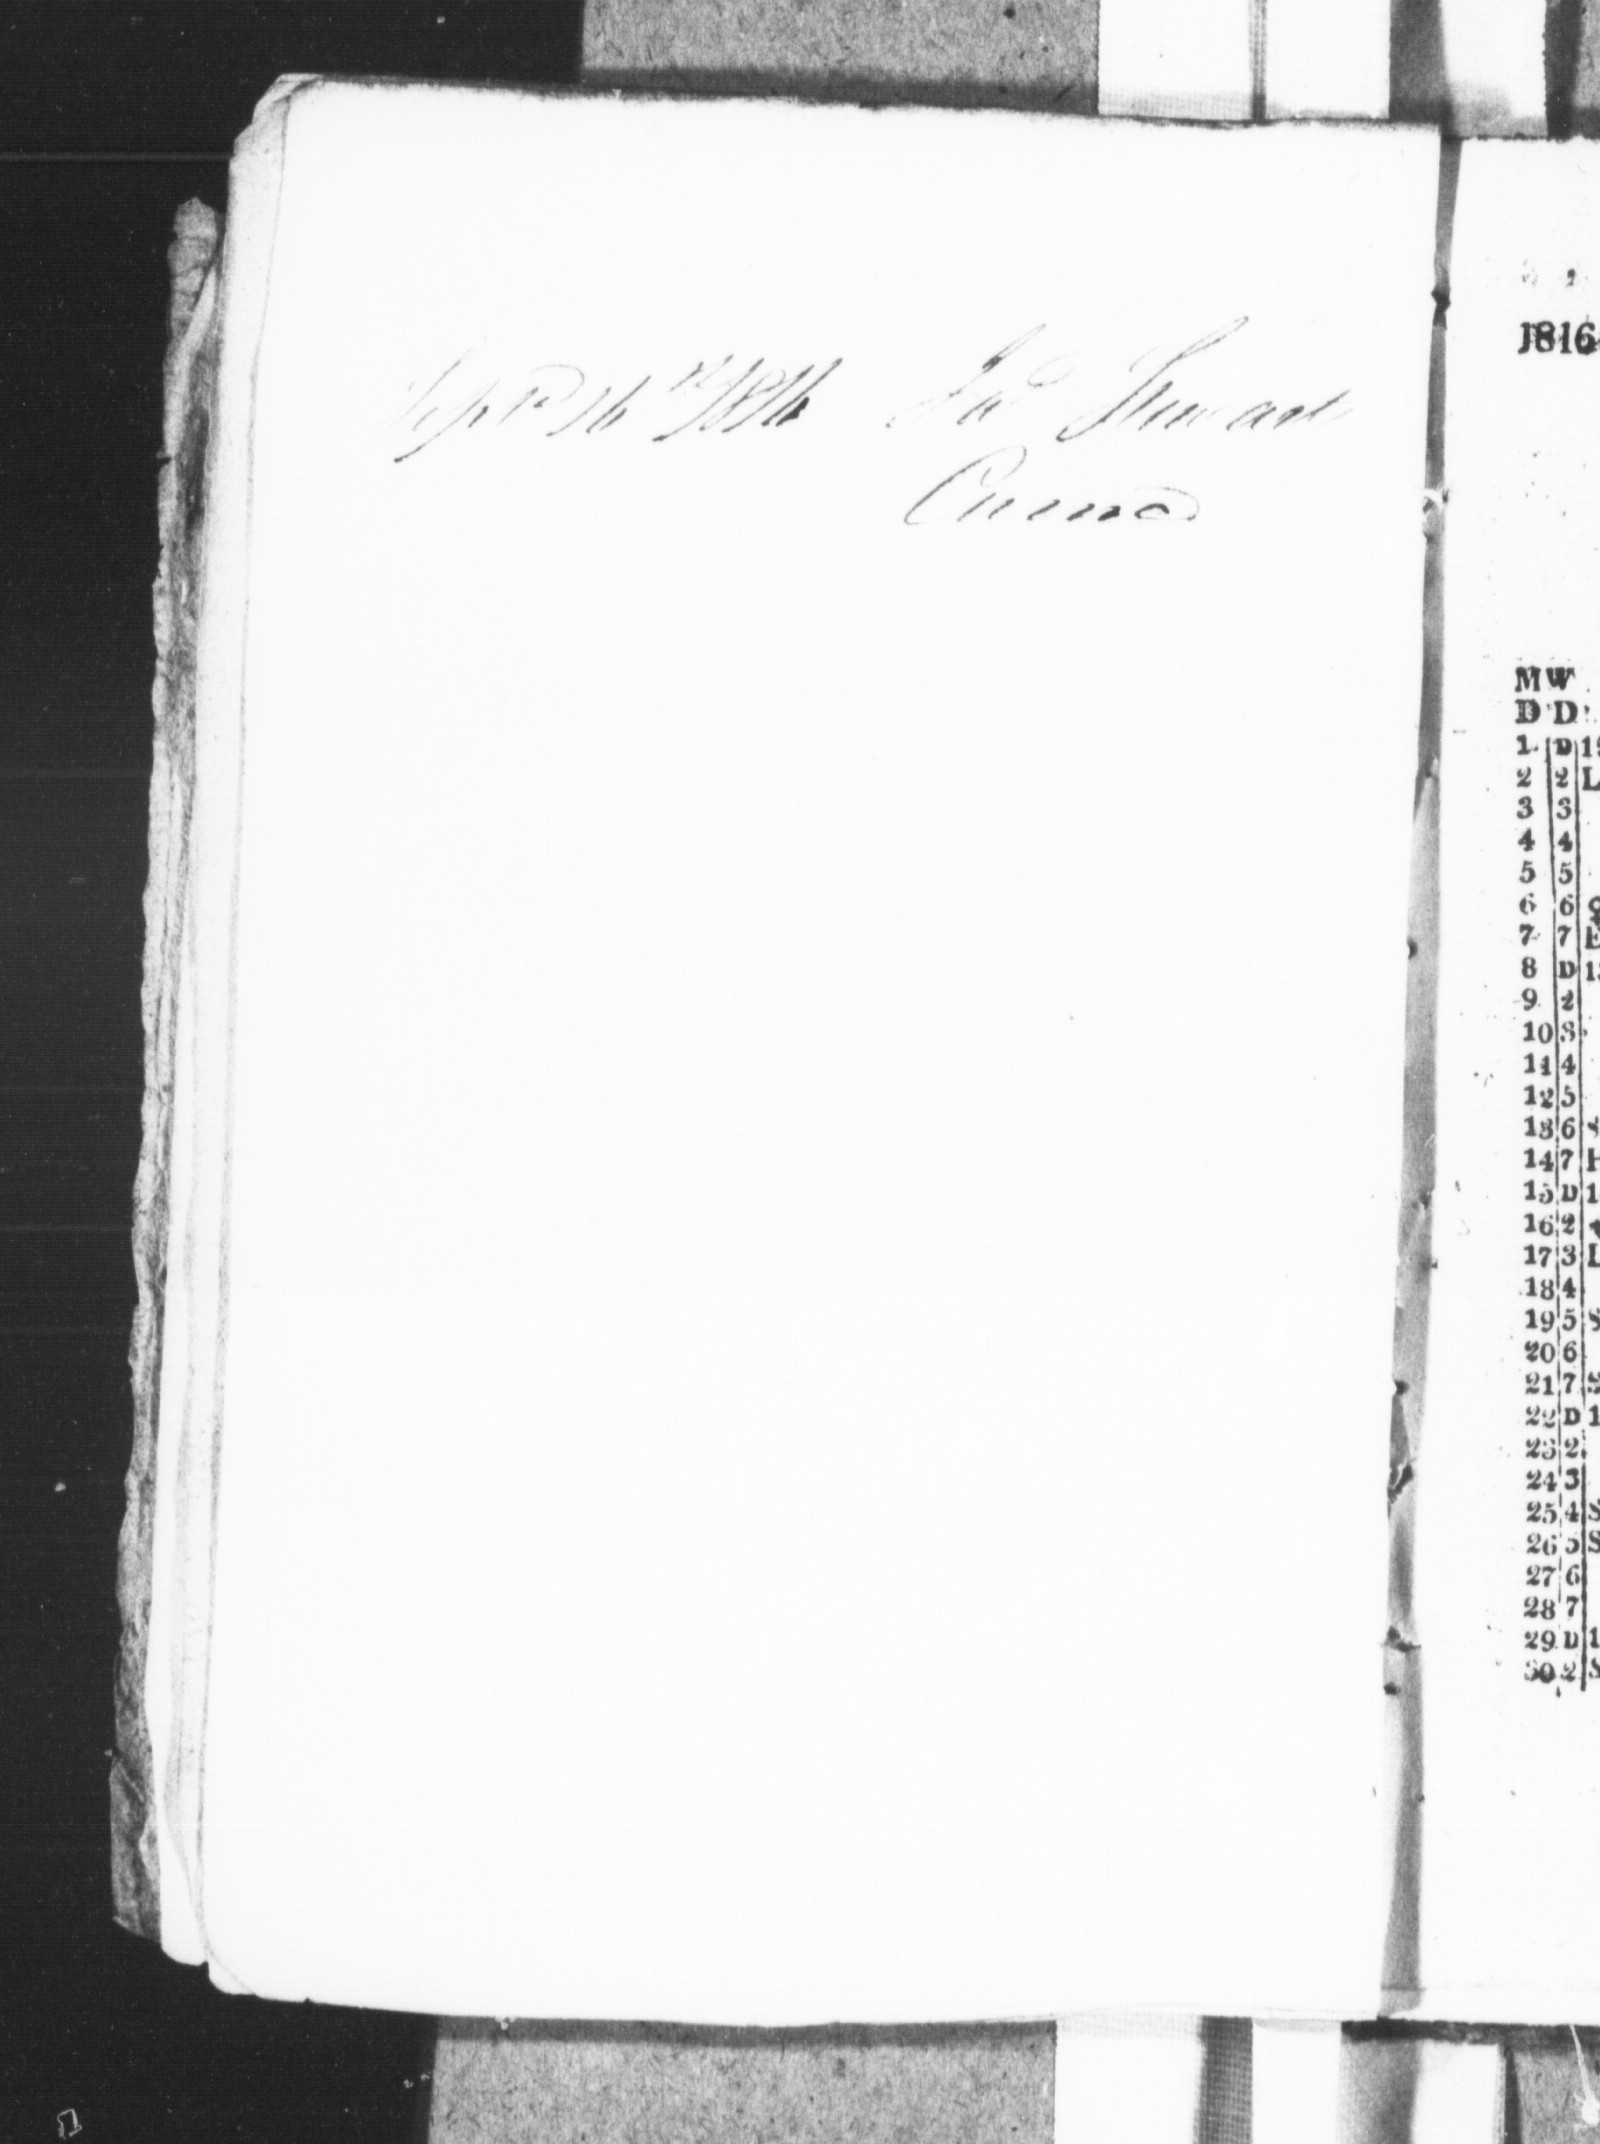 Septr 16th 1816 Jas Stewart
1816
M W
D D
1 D 1
2 2 L
3 3
4 4
5 5
6 6 ♀
7 7 E
8 D 1
9 2
10 3
11 4
12 5
13 6 S
14 7 H
15 D 1
16 2
17 3 L
18 4
19 5 S
20 6
21 7 S
22 D 1
23 2
24 3
25 4 S
26 5 S
27 6
28 7
29 D 1
30 2 S